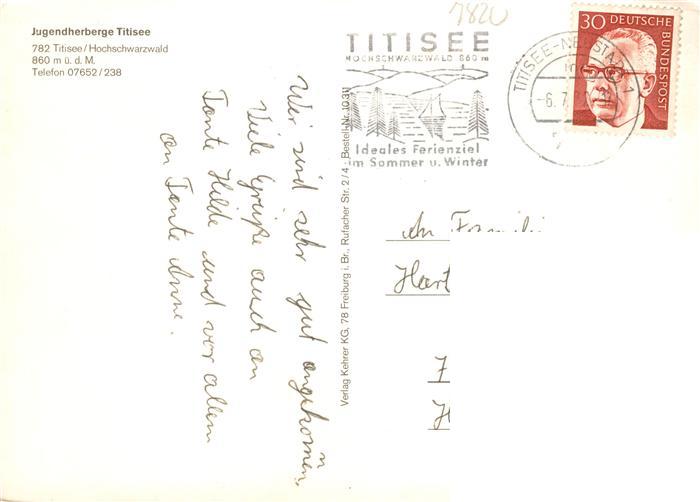 Jugendherberge Titisee
782 Titisee/Hochschwarzwald
860 m ü. d. M.
Telefon 07652/238
7820
TITISEE
HOCHSCHWARZWALD 860 m
Ideales Ferienziel
im Sommer u. Winter
TITISEE-NEUSTADT 1
-6.7.
30 DEUTSCHE
BUNDESPOST
Wir sind sehr gut angekommen,
Viele Grüße auch an
Tante Hilde und vor allem
an Tante Anne.
Verlag Kehrer KG, 78 Freiburg i. Br., Rufacher Str. 2/4 · Bestell-Nr. 10311
An Famili
Hart